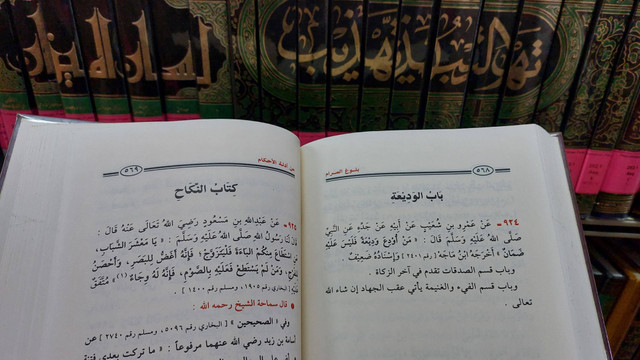 لسان الميزان
تهذيب التهذيب
٥٦٨
بلوغ المرام
بَابُ الوَدِيْعَة
٩٢٤ - عَنْ عَمْرِو بنِ شُعَيْبٍ عَنْ أَبِيْهِ عَنْ جَدِّهِ عَنِ النَّبِيِّ
صَلَّى اللهُ عَلَيْهِ وَسَلَّمَ قَالَ : « مَنْ أُوْدِعَ وَدِيْعَةً فَلَيْسَ عَلَيْهِ
ضَمَانٌ » أَخْرَجَهُ ابْنُ مَاجَهْ [رقم ٢٤٠١] وَإِسْنَادُهُ ضَعِيْفٌ .
وباب قسم الصدقات تقدم في آخر الزكاة .
وباب قسم الفيء والغنيمة يأتي عقب الجهاد إن شاء الله
تعالى .
من أدلة الأحكام
٥٦٩
كِتَابُ النِّكَاحِ
٩٢٥ - عَنْ عَبْدِاللهِ بنِ مَسْعُودٍ رَضِيَ اللهُ تَعَالَى عَنْهُ قَالَ :
قَالَ لَنَا رَسُولُ اللهِ صَلَّى اللهُ عَلَيْهِ وَسَلَّمَ : « يَا مَعْشَرَ الشَّبَابِ،
مَنِ اسْتَطَاعَ مِنْكُمُ البَاءَةَ فَلْيَتَزَوَّجْ؛ فَإِنَّهُ أَغَضُّ لِلْبَصَرِ، وَأَحْصَنُ
لِلْفَرْجِ، وَمَنْ لَمْ يَسْتَطِعْ فَعَلَيْهِ بِالصَّوْمِ، فَإِنَّهُ لَهُ وِجَاءٌ »(١) مُتَّفَقٌ
عَلَيْهِ [البخاري رقم ١٩٠٥، ومسلم رقم ١٤٠٠] .
* قال سماحة الشيخ رحمه الله :
وفي « الصحيحين » [البخاري رقم ٥٠٩٦، ومسلم رقم ٢٧٤٠] عن
أسامة بن زيد رضي الله عنهما مرفوعاً : « ما تركت بعدي فتنة